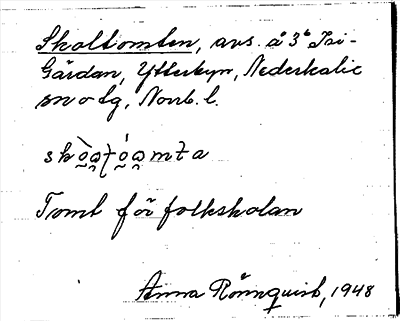 Skoltomten, avs. å 3⁶ Tri-
Gårdan, Ytterbyn, Nederkalix
sn o tg, Norrb. l.
Tomt för folkskolan
Anna Rönnqvist, 1948